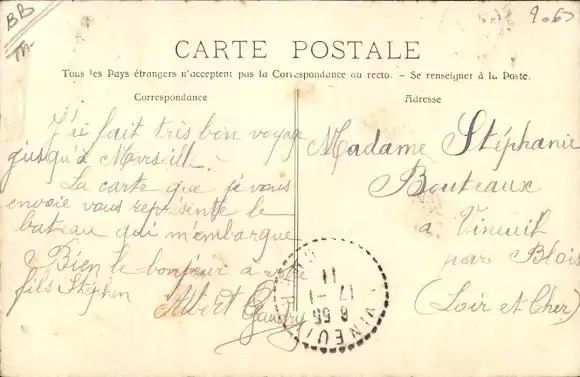 BB
CARTE POSTALE
Tous les Pays étrangers n'acceptent pas la Correspondance au recto. - Se renseigner à la Poste.
Correspondance
J'ai fait très bon voyage
jusqu'à Marseille.
La carte que je vous
envoie vous représente le
bateau qui m'embarque
Bien le bonjour a votre
fils Stéphen
Albert Gaudry
Adresse
Madame Stéphanie
Bouteaux
a Vineuil
par Blois
(Loir et Cher)
VINEUIL
8 55
17 -1
11